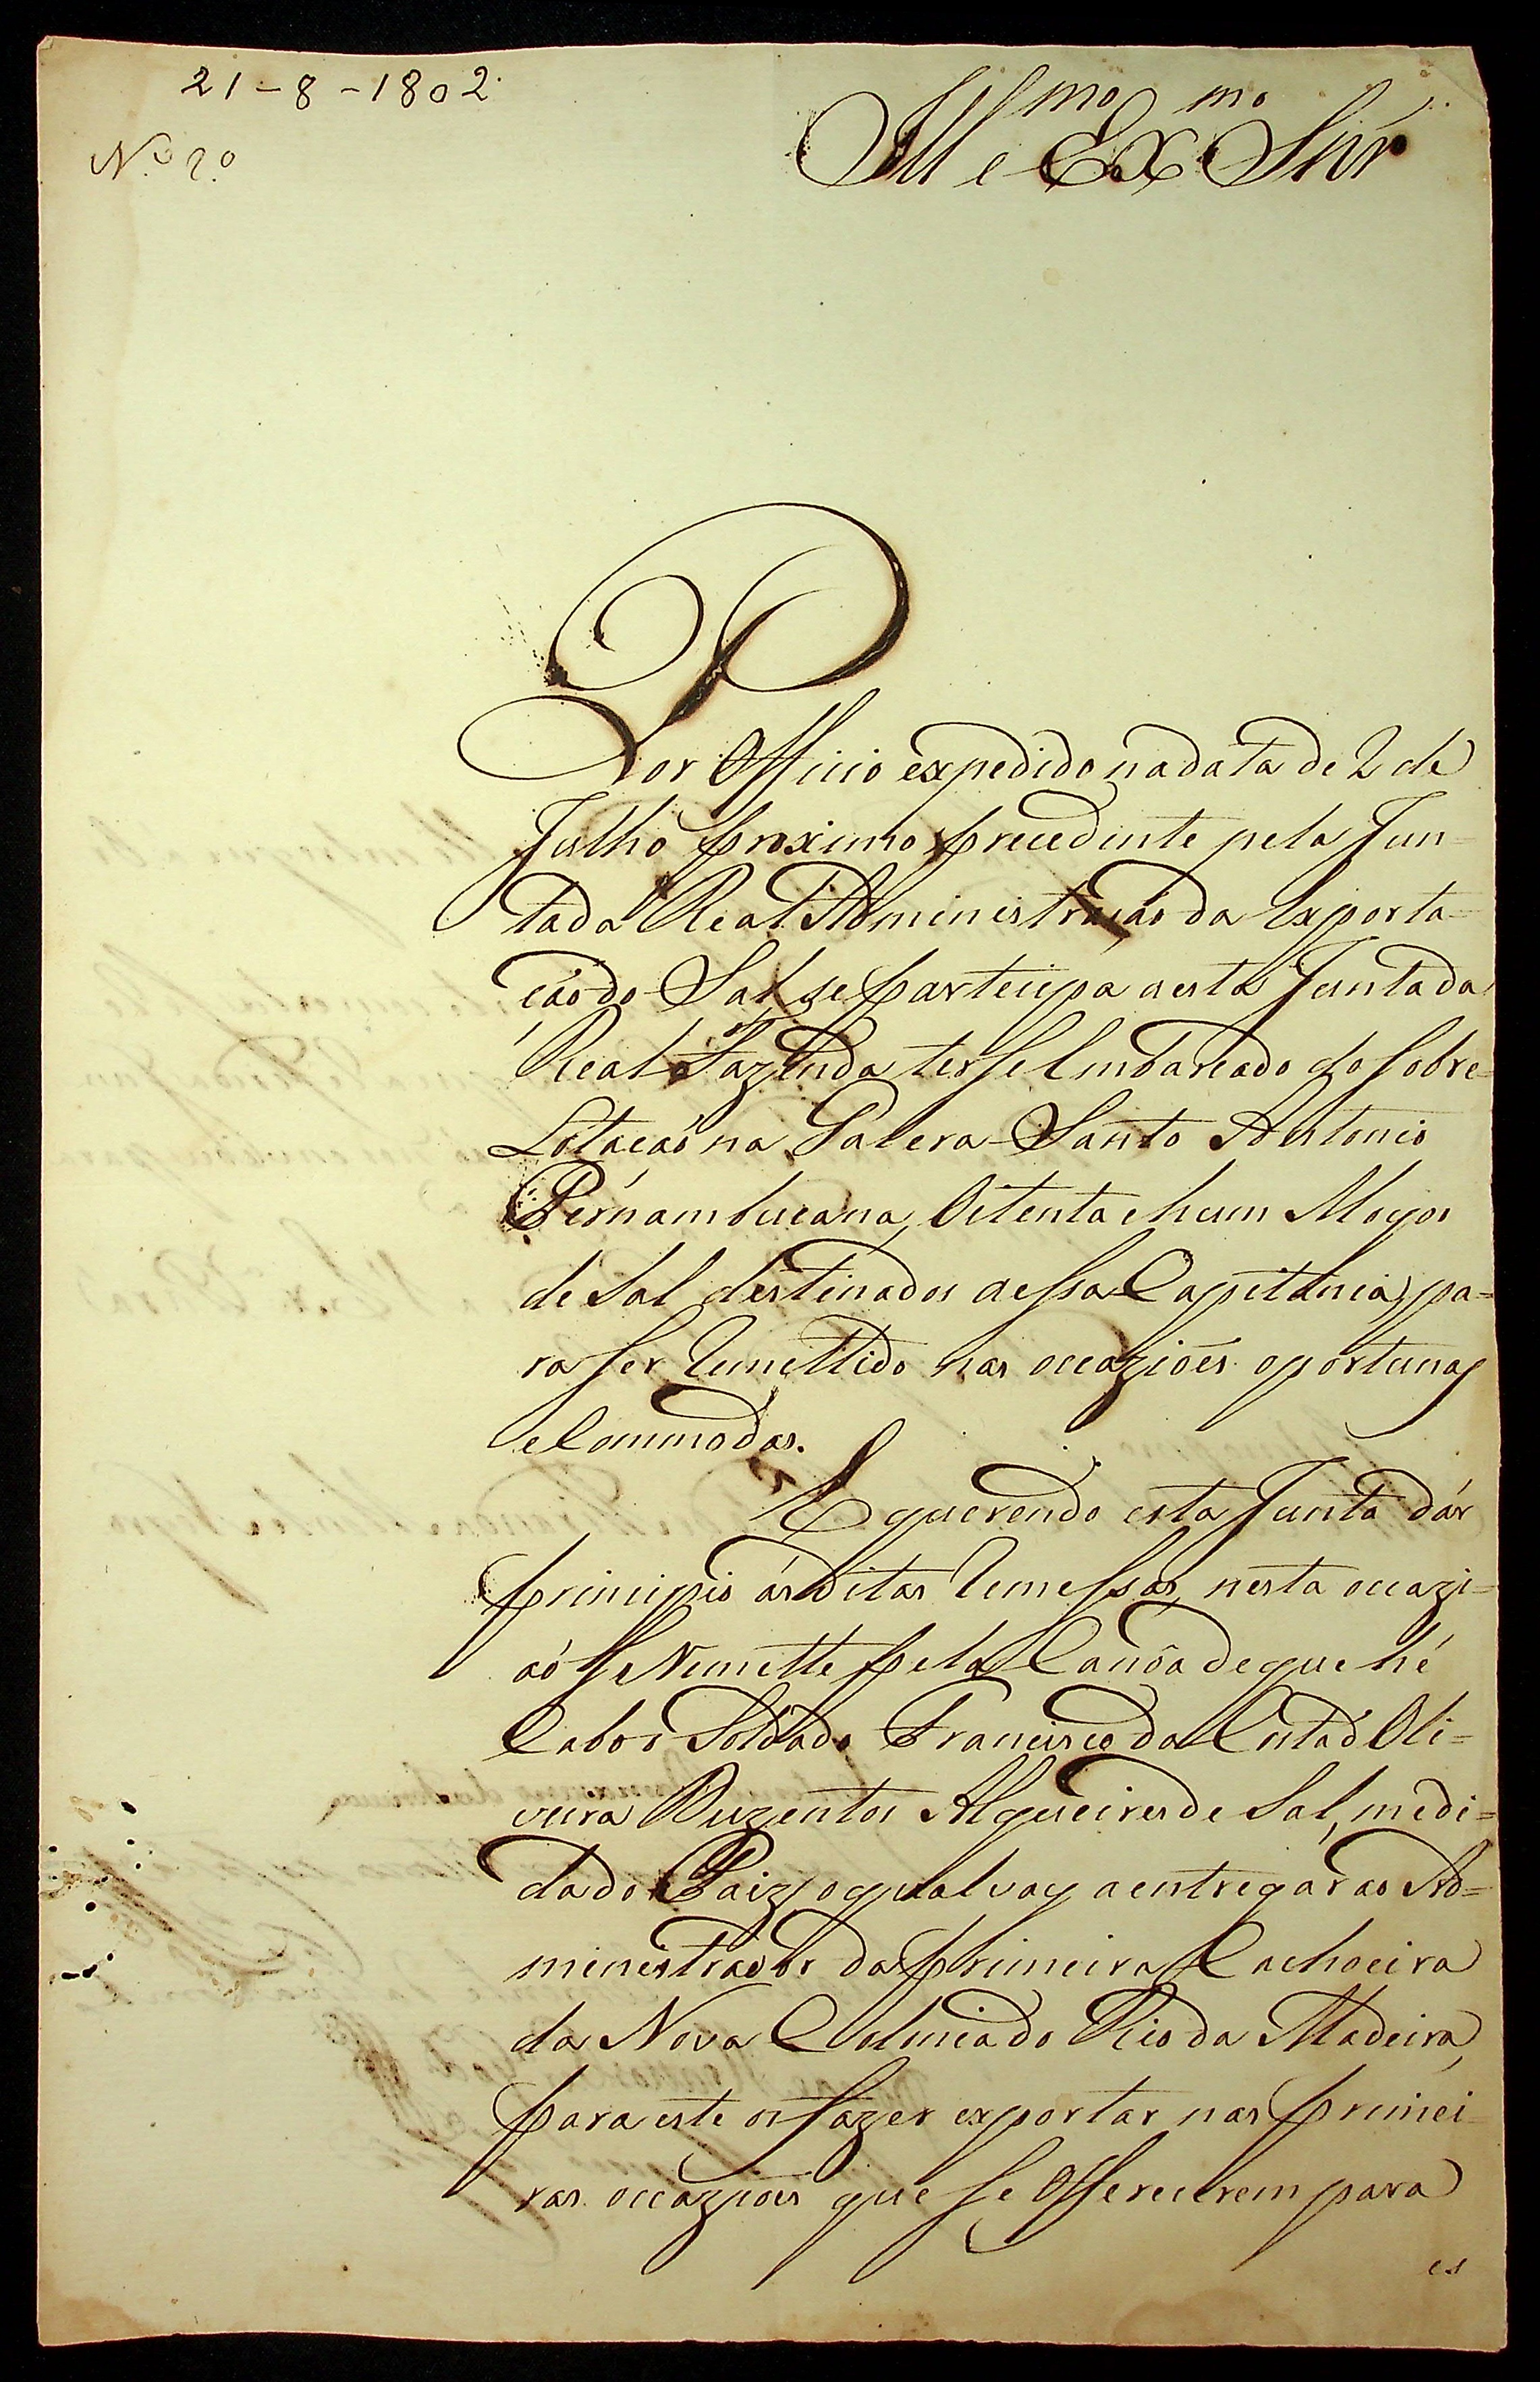 21-8-1802
N.º 2.º
Ill^mo e Ex^mo Snr
Por Officio expedido na data de 2 de
Julho proximo precedente pela Jun-
tada Real Administração da Exporta-
ção do Sal, se partecipa a esta Junta da
Real Fazenda ter se Embarcado de sobre-
Lotação na Galera Santo Antonio
Pernambucana, Oitenta e hum Moyos
de Sal destinados a essa Capitania, pa-
ra ser Remettido nas occaziões oportunas
e Commodas.
E querendo esta Junta dár
principio ás ditas Remessas, nesta occazi-
aó se Remette pela Canôa de que hé
Cabo o Soldado Francisco da Costa d'Oli-
veira Duzentos Alqueires de Sal, medi-
da do Paiz, o qual vay a entregar ao Ad-
ministrador da primeira Cachoeira
da Nova Colonia do Rio da Madeira,
para este os fazer exportar nas primei-
ras occaziões que se Offerecerem para
es